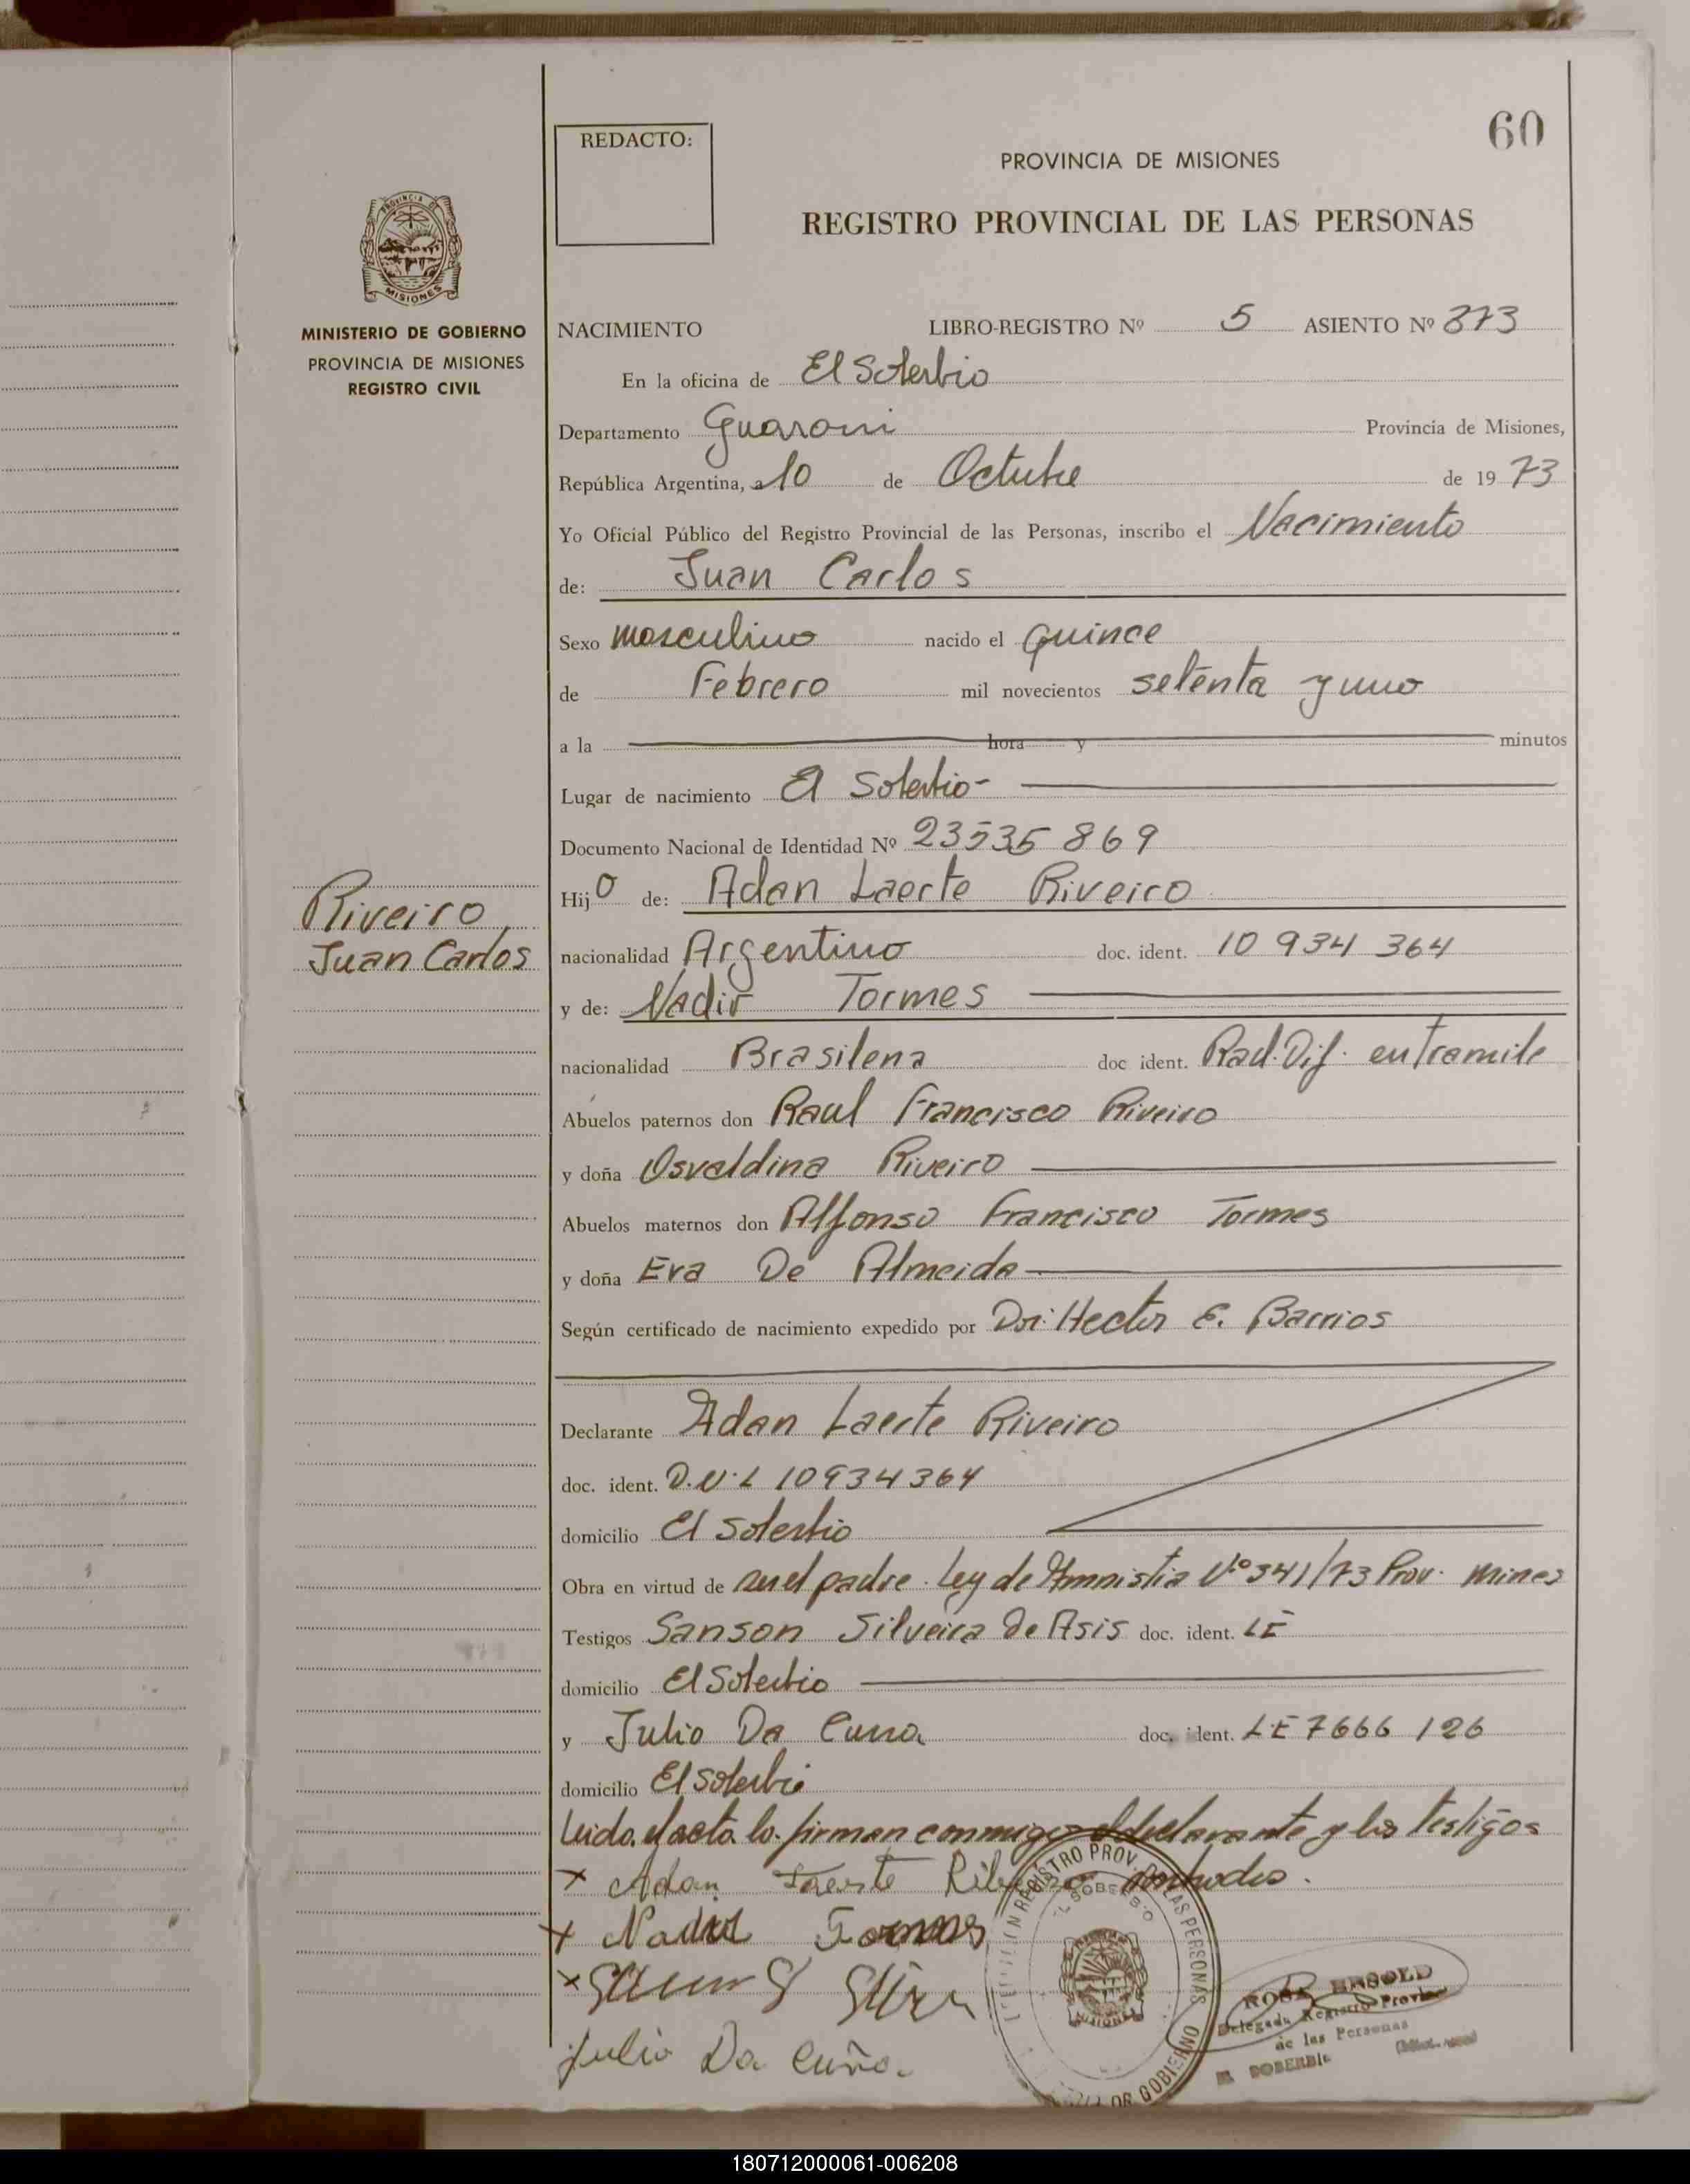 60
REDACTO:
PROVINCIA DE MISIONES
REGISTRO PROVINCIAL DE LAS PERSONAS
PROVINCIA DE
MISIONES
MINISTERIO DE GOBIERNO
PROVINCIA DE MISIONES
REGISTRO CIVIL
NACIMIENTO LIBRO-REGISTRO Nº 5 ASIENTO Nº 873
En la oficina de El Soberbio
Departamento Guarani Provincia de Misiones,
República Argentina, a 10 de Octubre de 1973
Yo Oficial Público del Registro Provincial de las Personas, inscribo el Nacimiento
de: Juan Carlos
Sexo masculino nacido el quince
de Febrero mil novecientos setenta y uno
a la hora y minutos
Lugar de nacimiento El Soberbio-
Documento Nacional de Identidad Nº 23535 869
Hijo de: Adan Laerte Riveiro
Riveiro
Juan Carlos
nacionalidad Argentino doc. ident. 10 934 364
y de: Nadir Tormes
nacionalidad Brasilena doc ident. Rad. Dif. en Tramite
Abuelos paternos don Raul Francisco Riveiro
y doña Osvaldina Riveiro
Abuelos maternos don Alfonso Francisco Tormes
y doña Eva De Almeida
Según certificado de nacimiento expedido por Dr. Hector E. Barrios
Declarante Adan Laerte Riveiro
doc. ident. D.N.I 10934364
domicilio El Soberbio
Obra en virtud de ser el padre. Ley de Amnistia Nº 341/73 Prov. Mines
Testigos Sanson Silveira De Asis doc. ident. LE
domicilio El Soberbio
y Julio Da Cuna doc. ident. LE 7666 126
domicilio El Soberbio
Leido el acta lo firman conmigo el declarante y los testigos
Adan Laerte
x Tormes
x
Julio Da Cuña.
REGISTRO PROV. DE LAS PERSONAS
EL SOBERBIO
MISIONES
GOBIERNO
ROSA
Delegada Registro Provincial
de las Personas
EL SOBERBIO
180712000061-006208